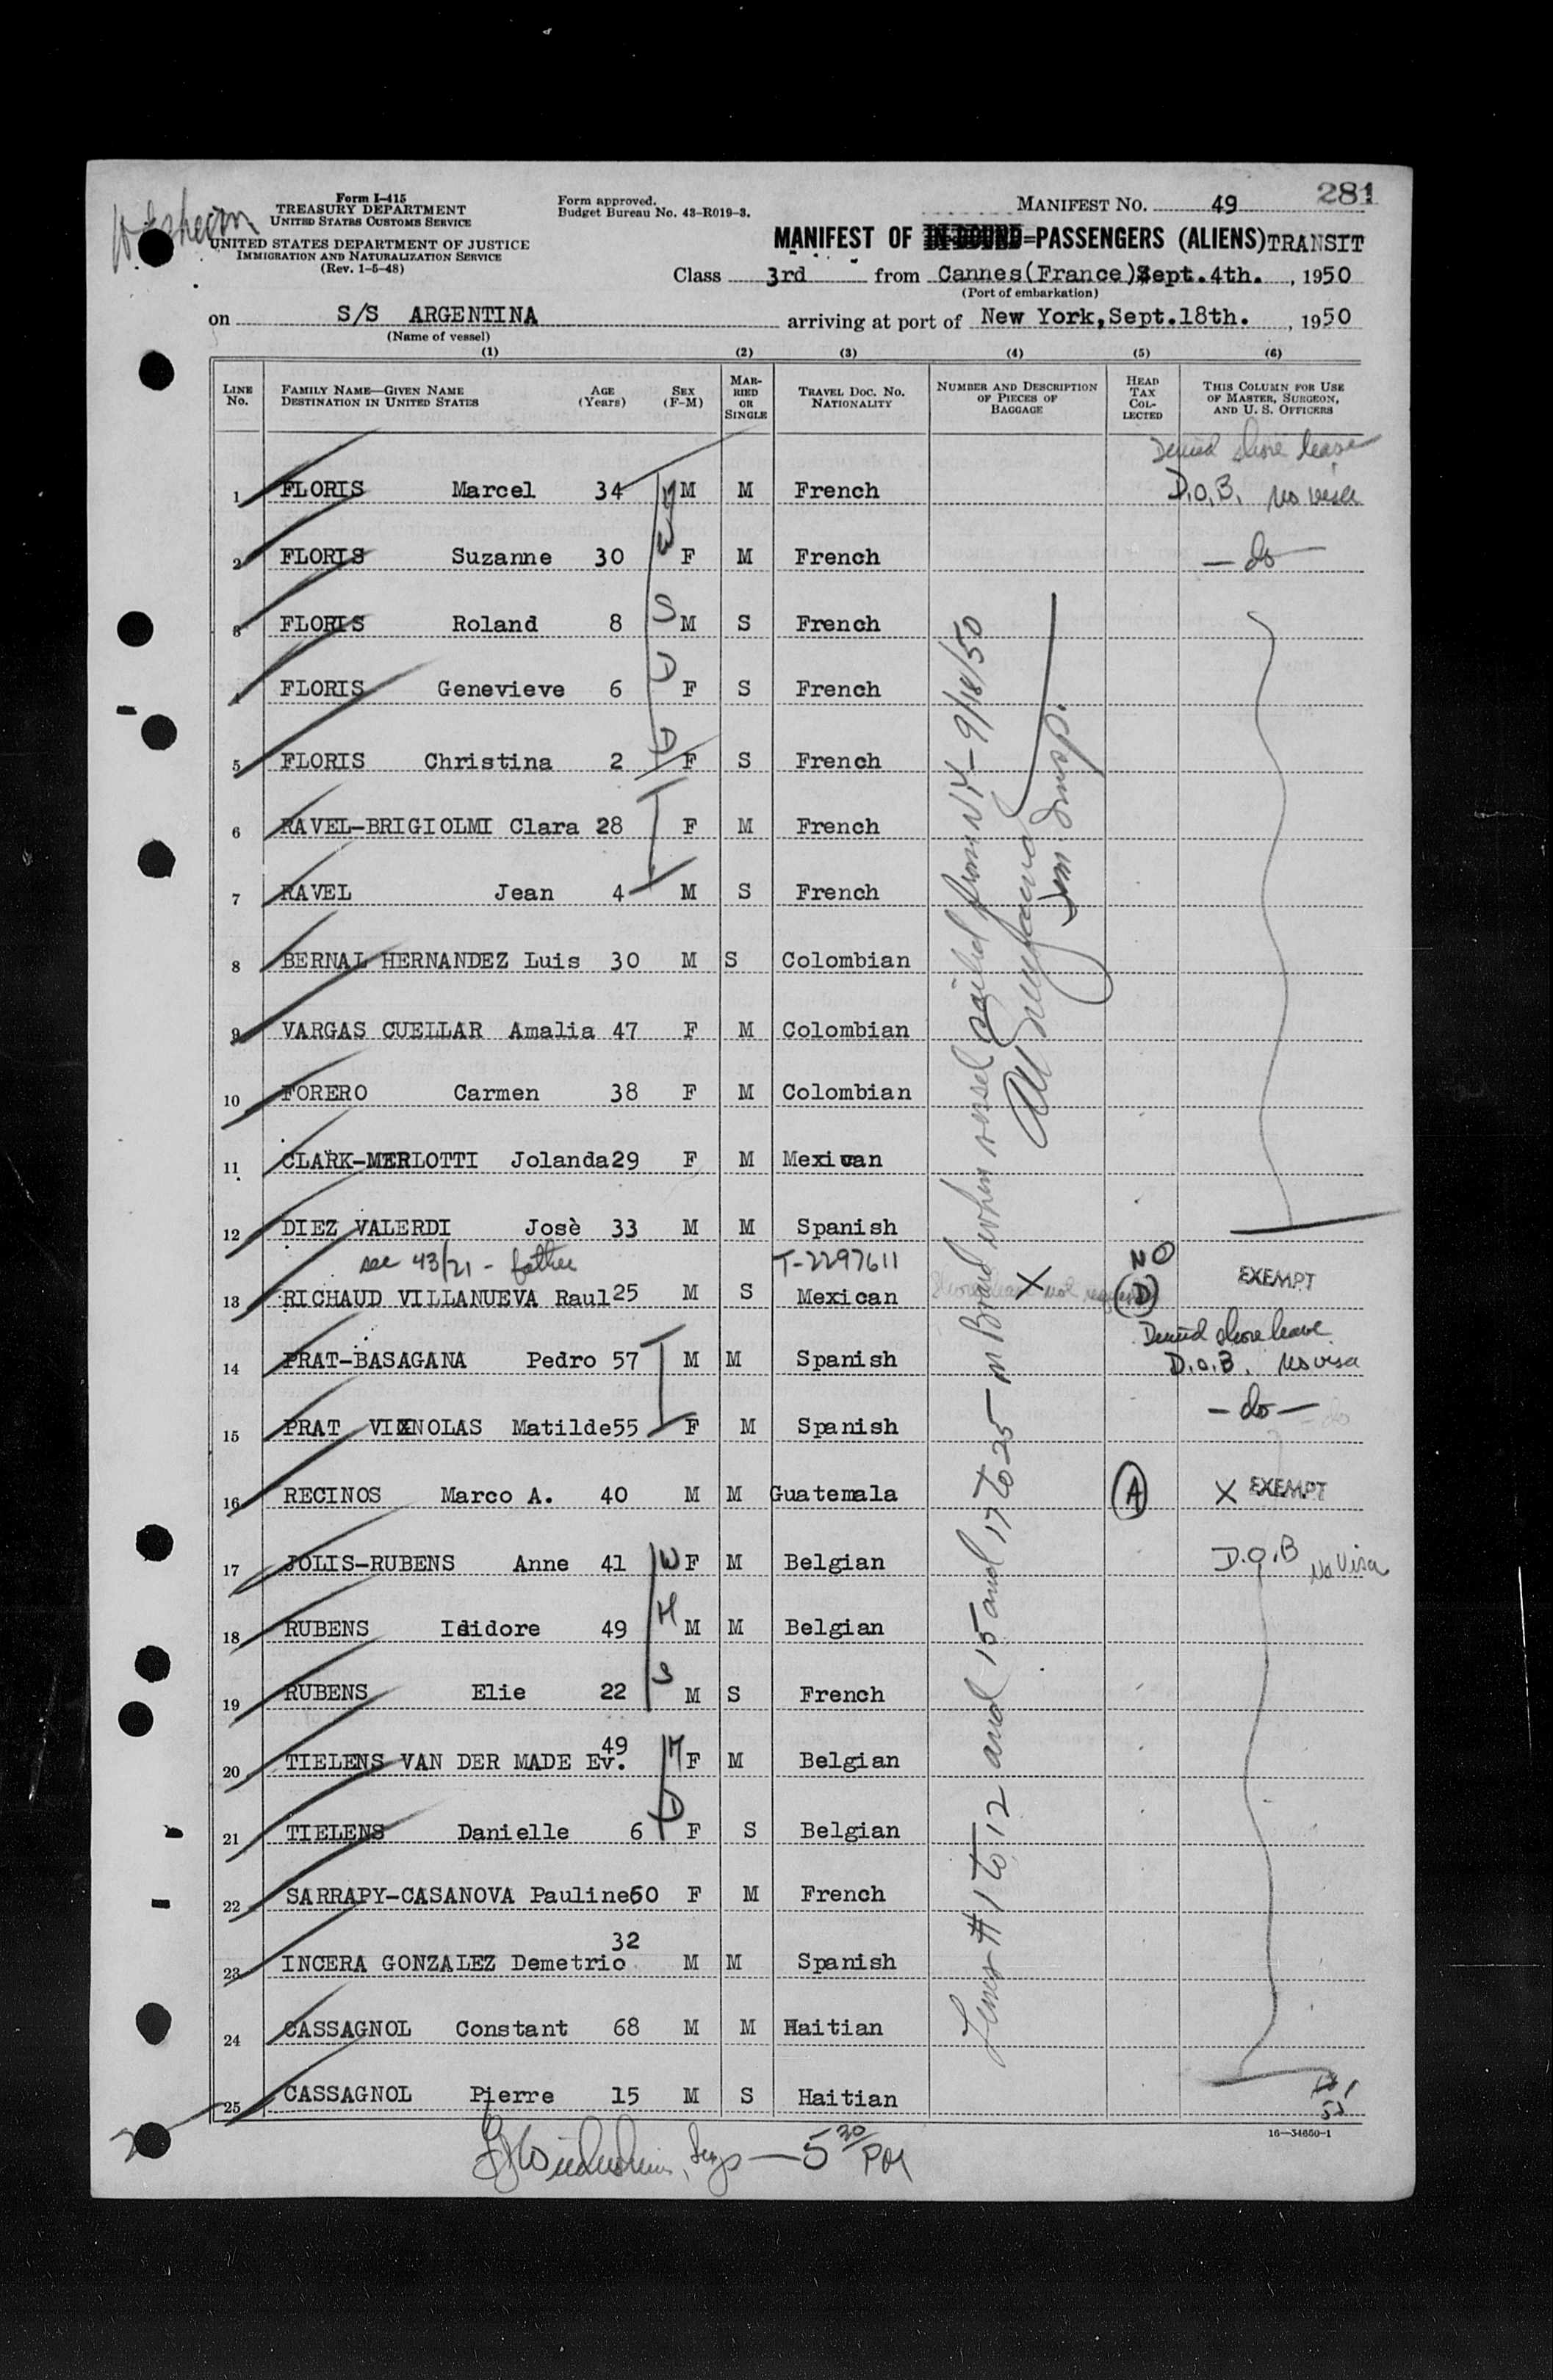 281
Form I-415
TREASURY DEPARTMENT
UNITED STATES CUSTOMS SERVICE
UNITED STATES DEPARTMENT OF JUSTICE
IMMIGRATION AND NATURALIZATION SERVICE
(Rev. 1-5-48)
Form approved.
Budget Bureau No. 43-R019-3.
MANIFEST NO. 49
MANIFEST OF IN-BOUND PASSENGERS (ALIENS) TRANSIT
Class 3rd from Cannes(France) Sept.4th. , 1950
(Port of embarkation)
on S/S ARGENTINA arriving at port of New York,Sept.18th. , 1950
(Name of vessel)
(1) (2) (3) (4) (5) (6)
LINE No. FAMILY NAME—GIVEN NAME DESTINATION IN UNITED STATES AGE (Years) SEX (F-M) MARRIED OR SINGLE TRAVEL DOC. NO. NATIONALITY NUMBER AND DESCRIPTION OF PIECES OF BAGGAGE HEAD TAX COLLECTED THIS COLUMN FOR USE OF MASTER, SURGEON, AND U. S. OFFICERS
Denied shore leave
1 FLORIS Marcel 34 H M M French D.O.B. No visa
2 FLORIS Suzanne 30 W F M French — do —
3 FLORIS Roland 8 S M S French
4 FLORIS Genevieve 6 D F S French
5 FLORIS Christina 2 D F S French
6 RAVEL-BRIGIOLMI Clara 28 F M French
7 RAVEL Jean 4 M S French
8 BERNAL HERNANDEZ Luis 30 M S Colombian
9 VARGAS CUELLAR Amalia 47 F M Colombian
10 FORERO Carmen 38 F M Colombian
11 CLARK-MERLOTTI Jolanda 29 F M Mexican
12 DIEZ VALERDI Josè 33 M M Spanish
see 43/21 - father T-2297611 NO
13 RICHAUD VILLANUEVA Raul 25 M S Mexican X D EXEMPT
Denied shore leave
14 PRAT-BASAGANA Pedro 57 M M Spanish D.O.B. No visa
15 PRAT VIXNOLAS Matilde 55 F M Spanish — do —
16 RECINOS Marco A. 40 M M Guatemala A X EXEMPT
17 JOLIS-RUBENS Anne 41 W F M Belgian D.O.B No Visa
18 RUBENS Isidore 49 H M M Belgian
19 RUBENS Elie 22 S M S French
20 TIELENS VAN DER MADE Ev. 49 M F M Belgian
21 TIELENS Danielle 6 D F S Belgian
22 SARRAPY-CASANOVA Pauline 60 F M French
23 INCERA GONZALEZ Demetrio 32 M M Spanish
24 CASSAGNOL Constant 68 M M Haitian
25 CASSAGNOL Pierre 15 M S Haitian
Lines #1 to 12 and 15 and 17 to 25 — on Board when vessel sailed from NY — 9/18/50
Imm. Insp.
Insp — 5 30 PM
16—34650-1